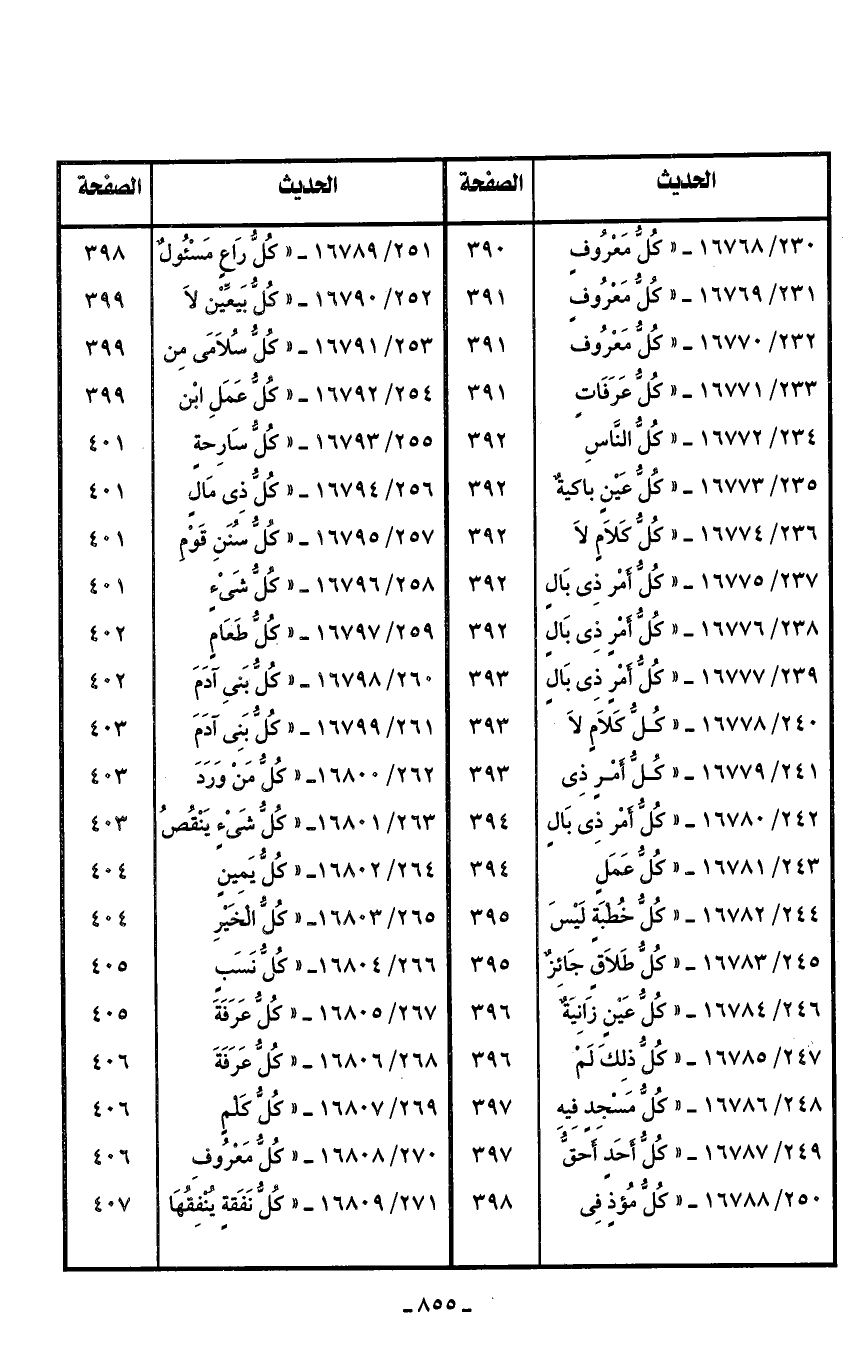 الحديث الصفحة الحديث الصفحة
١٦٧٦٨/٢٣٠ ـ « كُلُّ مَعْرُوفٍ ٣٩٠ ١٦٧٨٩/٢٥١ ـ « كُلُّ رَاعٍ مَسْئُولٌ ٣٩٨
١٦٧٦٩/٢٣١ ـ « كُلُّ مَعْرُوفٍ ٣٩١ ١٦٧٩٠/٢٥٢ ـ « كُلُّ بَيعِّيْن لاَ ٣٩٩
١٦٧٧٠/٢٣٢ ـ « كُلُّ مَعْرُوف ٣٩١ ١٦٧٩١/٢٥٣ ـ « كُلُّ سُلاَمَى مِن ٣٩٩
١٦٧٧١/٢٣٣ ـ « كُلُّ عَرَفَاتٍ ٣٩١ ١٦٧٩٢/٢٥٤ ـ « كُلُّ عَمَلِ ابْن ٣٩٩
١٦٧٧٢/٢٣٤ ـ « كُلُّ النَّاسِ ٣٩٢ ١٦٧٩٣/٢٥٥ ـ « كُلُّ سَارِحةٍ ٤٠١
١٦٧٧٣/٢٣٥ ـ « كُلُّ عَيْنٍ باكيةٌ ٣٩٢ ١٦٧٩٤/٢٥٦ ـ « كُلُّ ذِى مَالٍ ٤٠١
١٦٧٧٤/٢٣٦ ـ « كُلُّ كَلاَمٍ لاَ ٣٩٢ ١٦٧٩٥/٢٥٧ ـ « كُلُّ سُنَنِ قَوْمٍ ٤٠١
١٦٧٧٥/٢٣٧ ـ « كُلُّ أَمْر ذِى بَالٍ ٣٩٢ ١٦٧٩٦/٢٥٨ ـ « كُلُّ شَىْءٍ ٤٠١
١٦٧٧٦/٢٣٨ ـ « كُلُّ أَمْرٍ ذِى بَالٍ ٣٩٢ ١٦٧٩٧/٢٥٩ ـ « كُلُّ طَعَامٍ ٤٠٢
١٦٧٧٧/٢٣٩ ـ « كُلُّ أَمْرٍ ذِى بَالٍ ٣٩٣ ١٦٧٩٨/٢٦٠ ـ « كُلُّ بَنىِ آدَمَ ٤٠٢
١٦٧٧٨/٢٤٠ ـ « كُلُّ كَلاَمٍ لاَ ٣٩٣ ١٦٧٩٩/٢٦١ ـ « كُلُّ بَنِى آدَمَ ٤٠٣
١٦٧٧٩/٢٤١ ـ « كُلُّ أَمْرٍ ذِى ٣٩٣ ١٦٨٠٠/٢٦٢ـ « كُلُّ مَنْ وَرَدَ ٤٠٣
١٦٧٨٠/٢٤٢ ـ « كُلُّ أَمْر ذِى بَالٍ ٣٩٤ ١٦٨٠١/٢٦٣ـ « كُلُّ شَىْءٍ يَنْقُصُ ٤٠٣
١٦٧٨١/٢٤٣ ـ « كُلُّ عَمَلٍ ٣٩٤ ١٦٨٠٢/٢٦٤ـ « كُلُّ يَمِينٍ ٤٠٤
١٦٧٨٢/٢٤٤ ـ « كُلُّ خُطْبَةٍ لَيْسَ ٣٩٥ ١٦٨٠٣/٢٦٥ـ « كُلُّ الْخَيْرِ ٤٠٤
١٦٧٨٣/٢٤٥ ـ « كُلُّ طَلاَقٍ جَائِزٌ ٣٩٥ ١٦٨٠٤/٢٦٦ـ « كُلُّ نَسَبٍ ٤٠٥
١٦٧٨٤/٢٤٦ ـ « كُلُّ عَيْنٍ زَانِيَةٌ ٣٩٦ ١٦٨٠٥/٢٦٧ ـ « كُلُّ عَرَفَةَ ٤٠٥
١٦٧٨٥/٢٤٧ ـ « كُلُّ ذلِكَ لَمْ ٣٩٦ ١٦٨٠٦/٢٦٨ ـ « كُلُّ عَرَفَةَ ٤٠٦
١٦٧٨٦/٢٤٨ ـ « كُلُّ مَسْجِدٍ فِيهِ ٣٩٧ ١٦٨٠٧/٢٦٩ ـ « كُلُّ كَلْمٍ ٤٠٦
١٦٧٨٧/٢٤٩ ـ « كُلُّ أَحَدٍ أَحقُّ ٣٩٧ ١٦٨٠٨/٢٧٠ ـ « كُلُّ مَعْرُوفٍ ٤٠٦
١٦٧٨٨/٢٥٠ ـ « كُلُّ مُؤذٍ فِى ٣٩٨ ١٦٨٠٩/٢٧١ ـ « كُلُّ نَفَقةٍ يُنْفِقُهَا ٤٠٧
ـ ٨٥٥ ـ